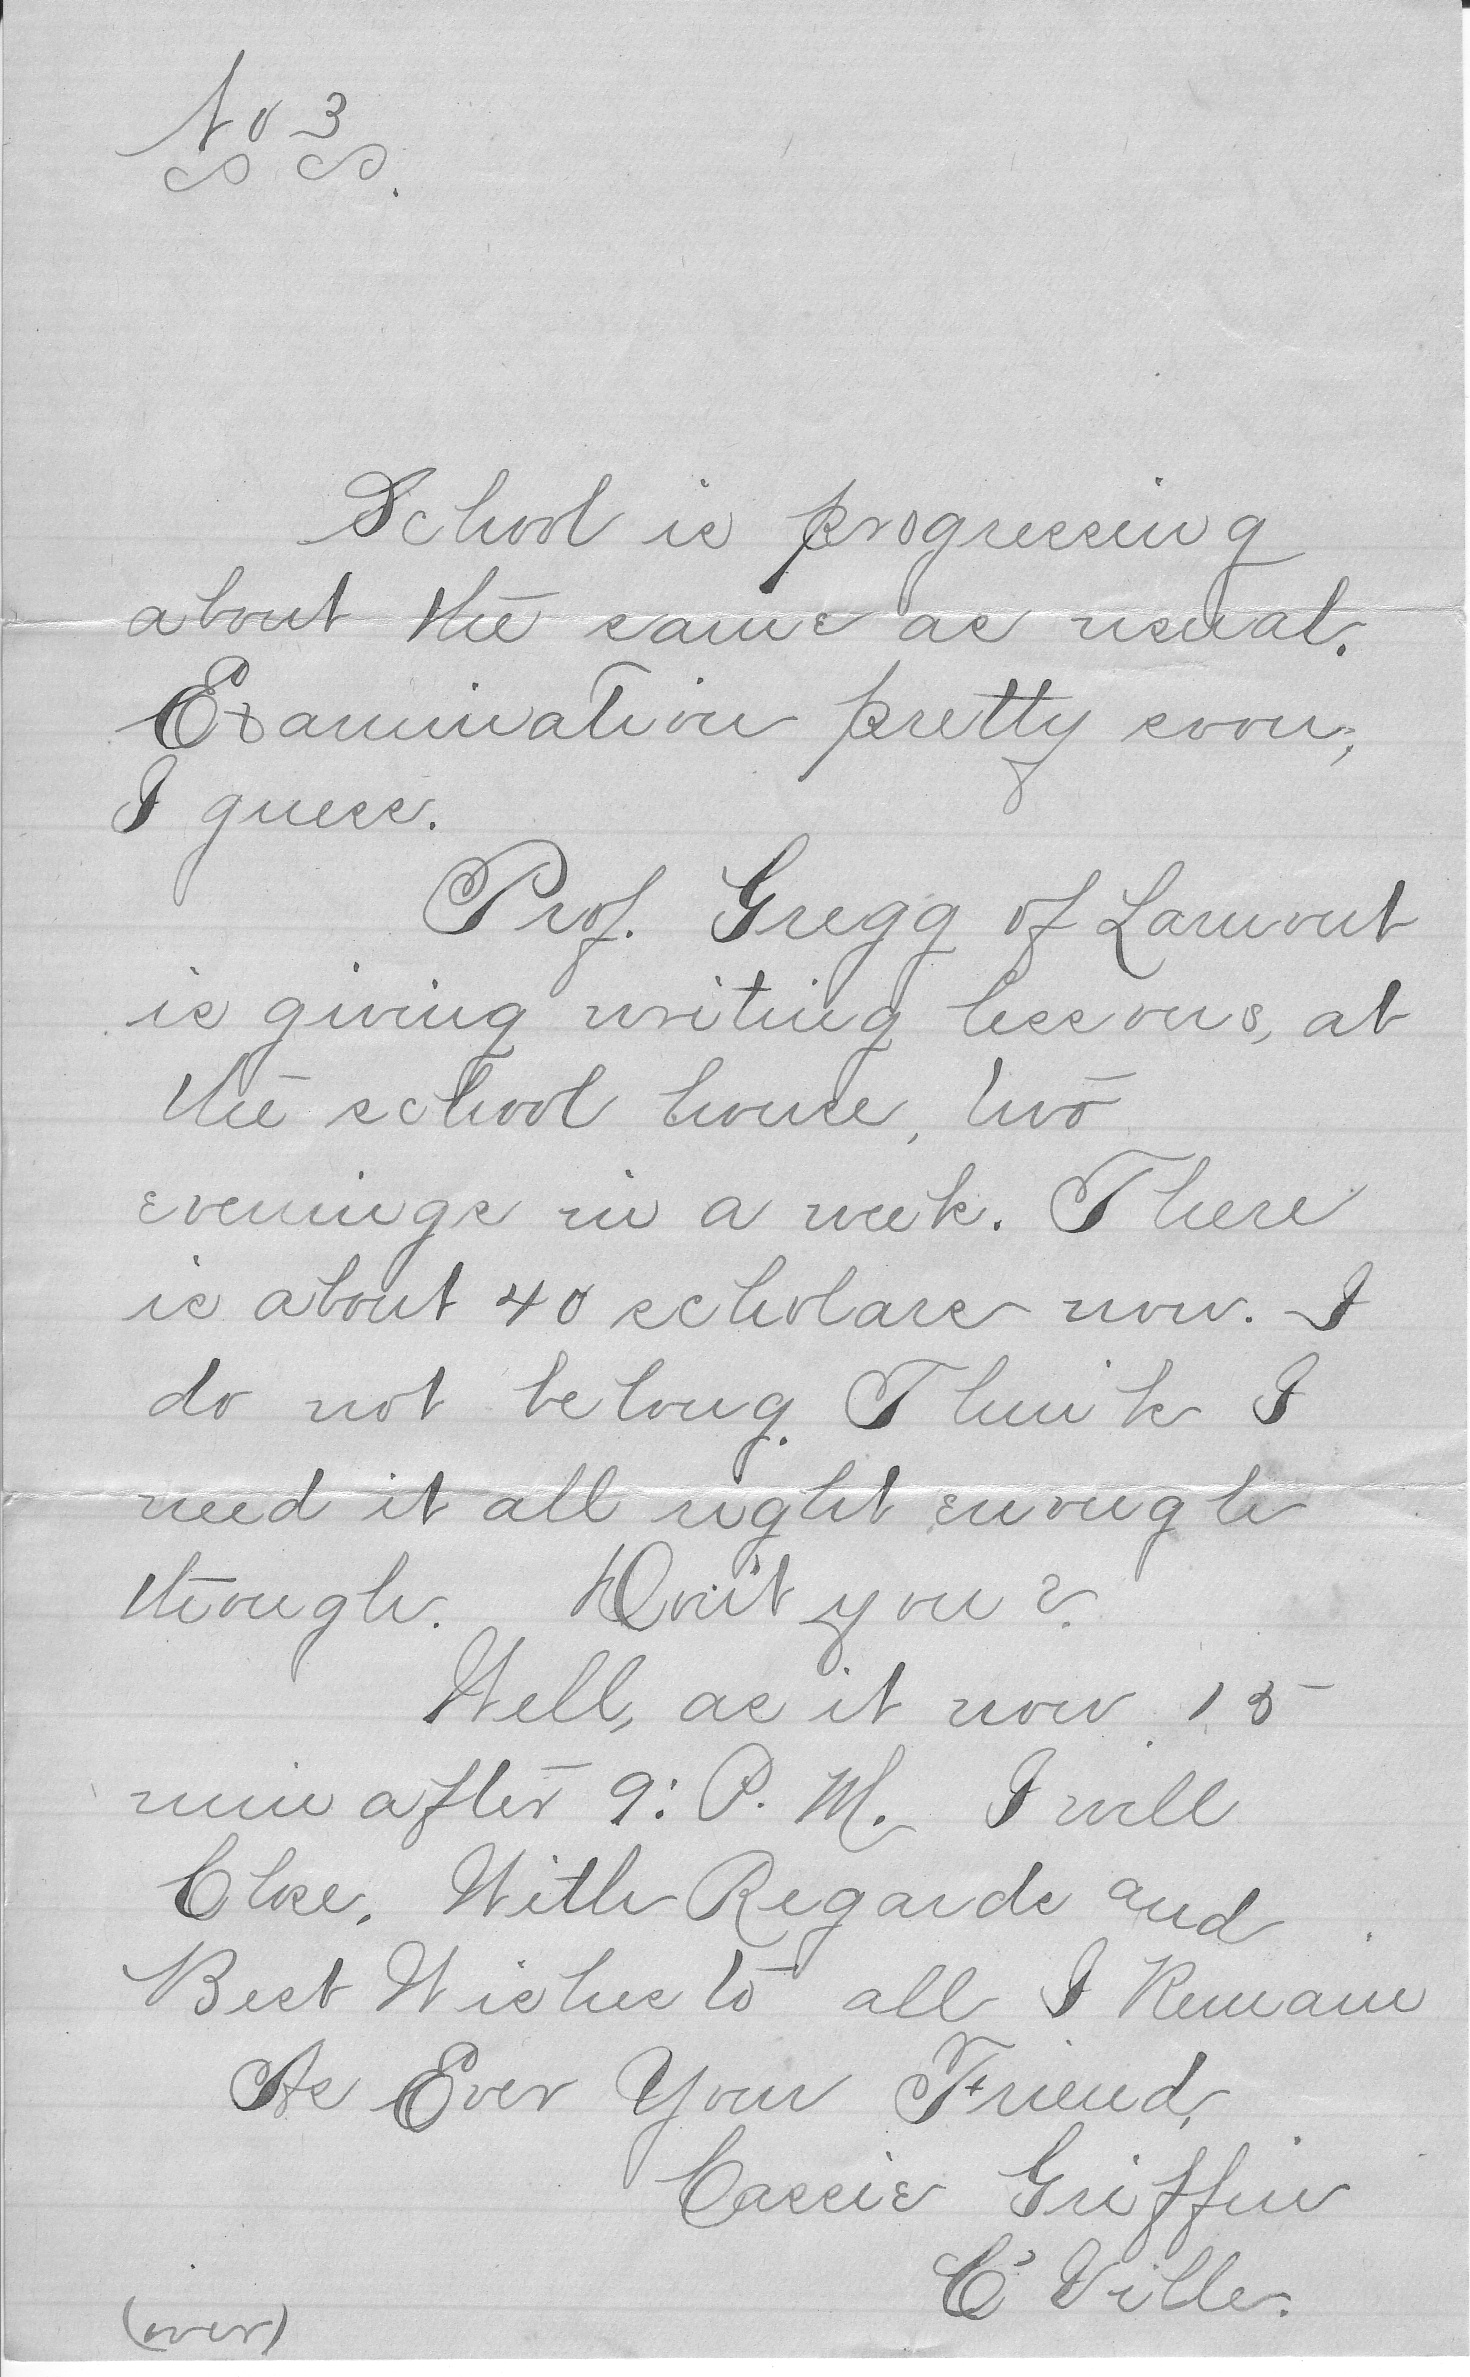 No 3
School is progressing
about the same as usual.
Examination pretty soon,
I guess.
Prof. Gregg of Lamont
is giving writing lessons, at
the school house, two
evenings in a week. There
is about 40 scholars now. I
do not belong. Think I
need it all right enough
though. Don't you?
Well, as it now 15
min after 9: P. M. I will
Close. With Regards and
Best Wishes to all I Remain
As Ever Your Friend,
Cassie Griffin
C'Ville.
(over)